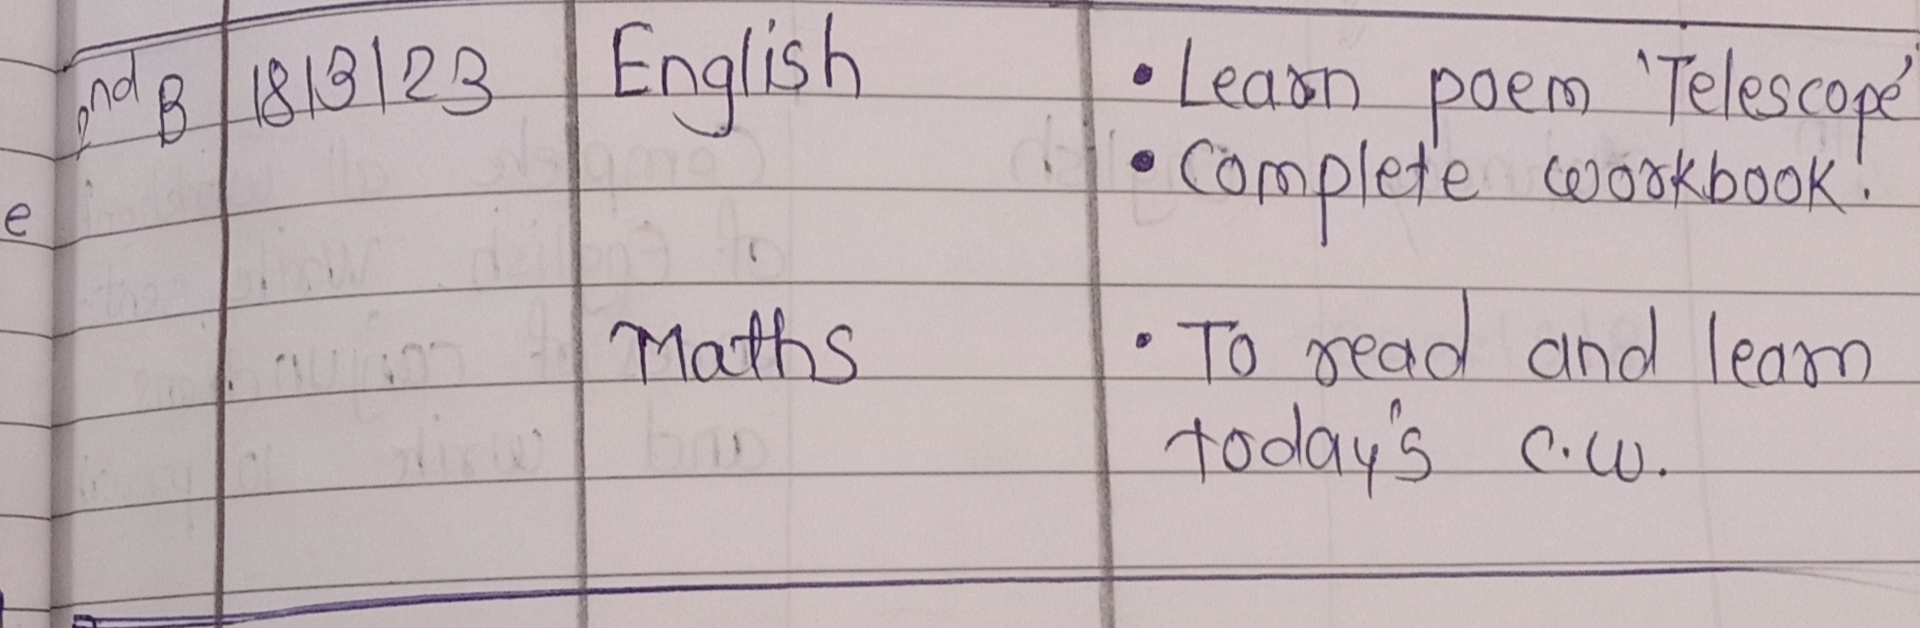 2nd B 18/3/23 English • Learn poem 'Telescope'
• Complete workbook.
e
Maths • To read and learn
today's c.w.